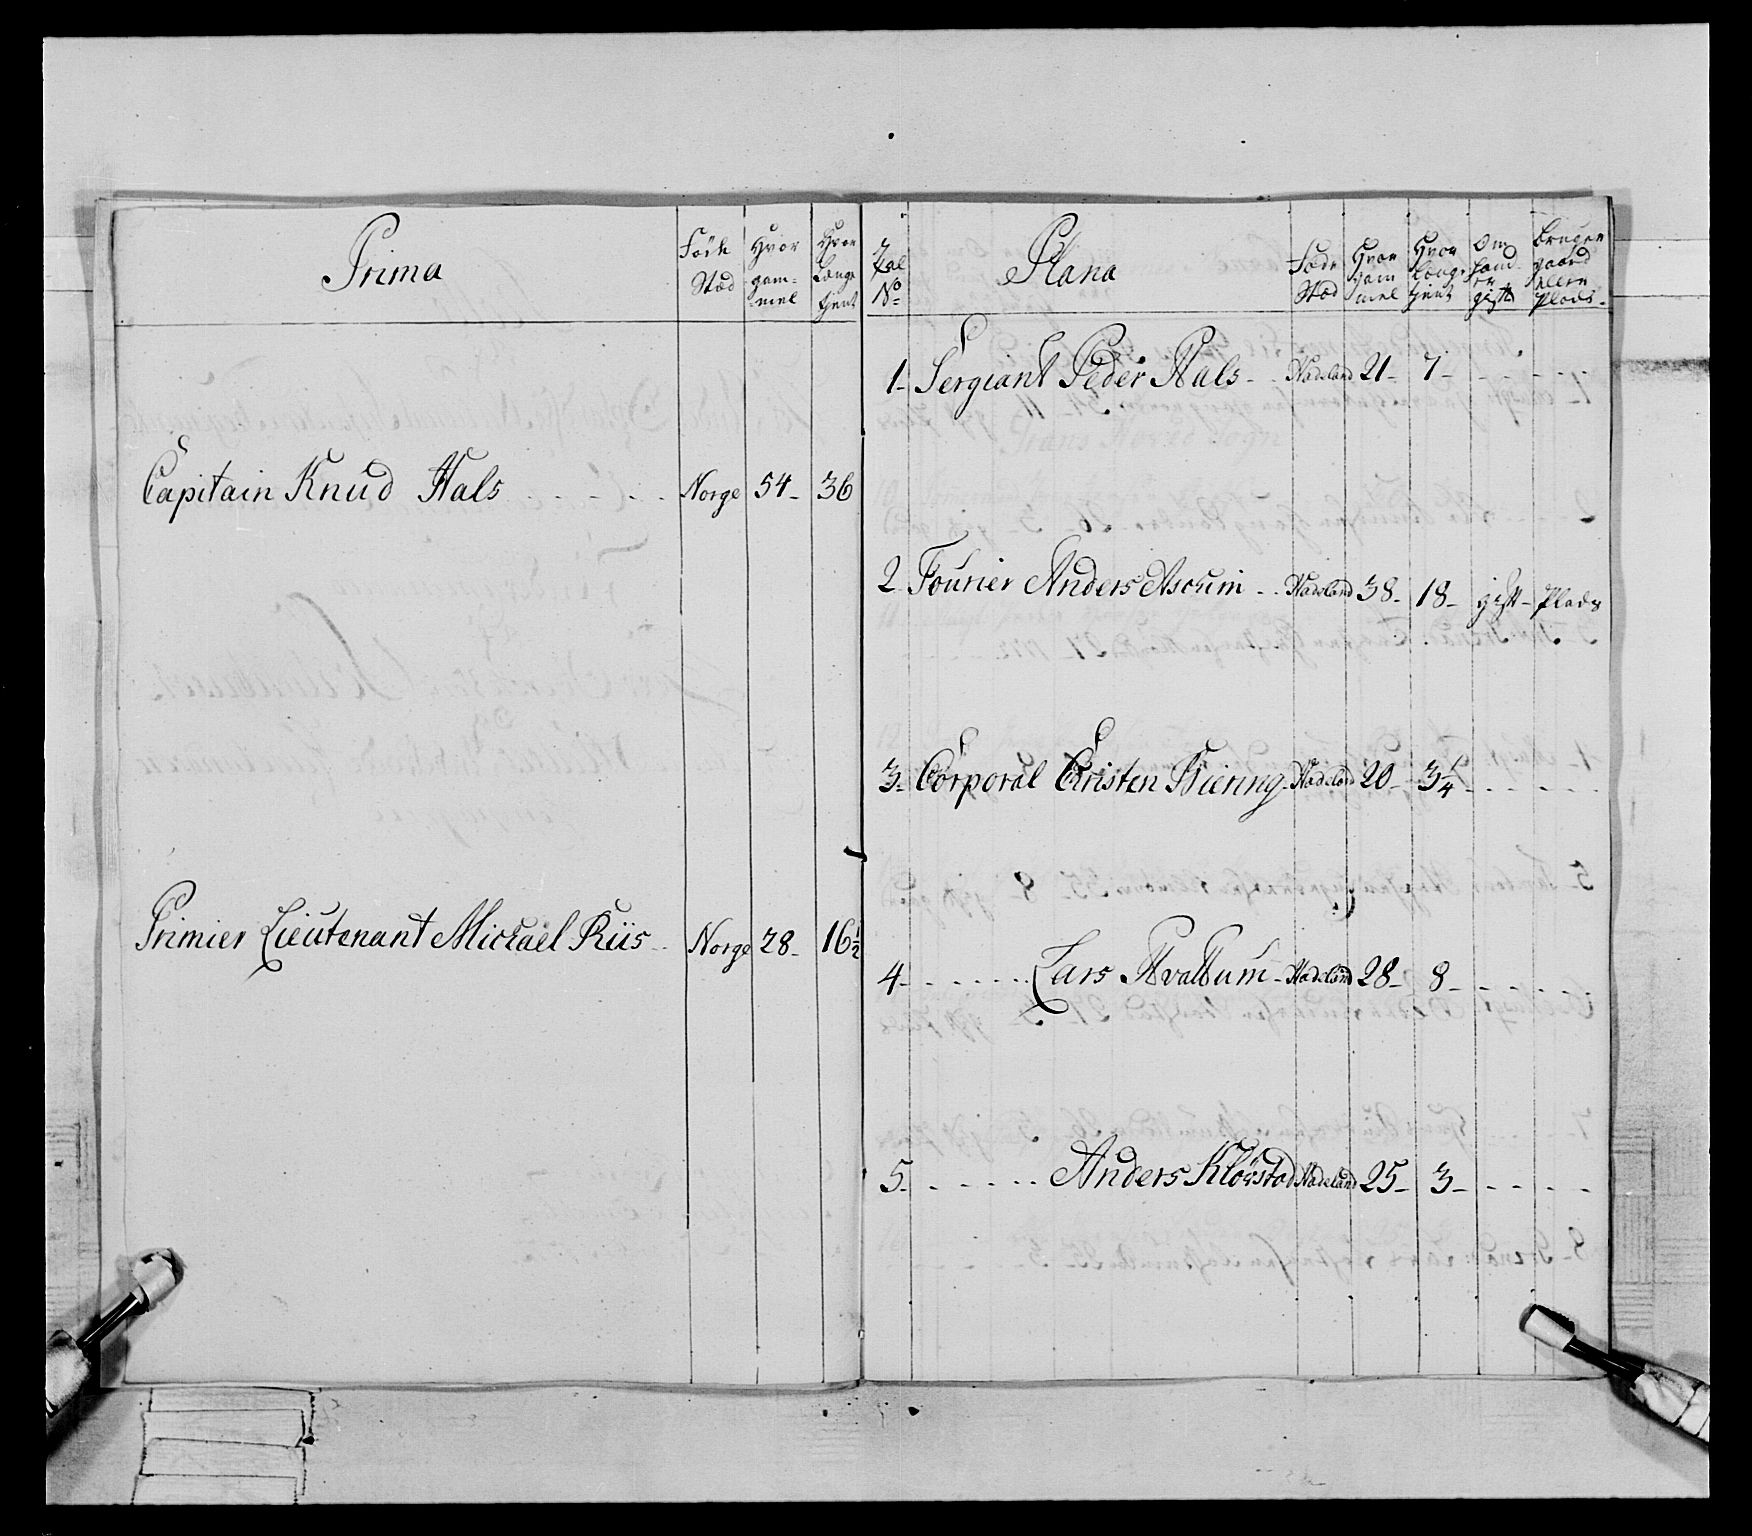 Prima
Føde Stæd
Hvor gam-mel
Hvor Længe tjent
Capitain Knud Hals Norge 54 36
Primier Lieutenant Michael Riis Norge 28 16½
Tal No
Plana
Føde Stæd
Hvor gam mel
Hvor Længe tjent
Om hand er gift
bruger gaard eller Plads
1 Sergiant Peder Hals Hadeland 21 7
2 Fourier Anders Hadeland 38 18 gift Plads
3 Corporal Christen Hadeland 20 3¼
4 Lars Hvattum Hadeland 28 8
5 Anders Kløvstad Hadeland 25 3